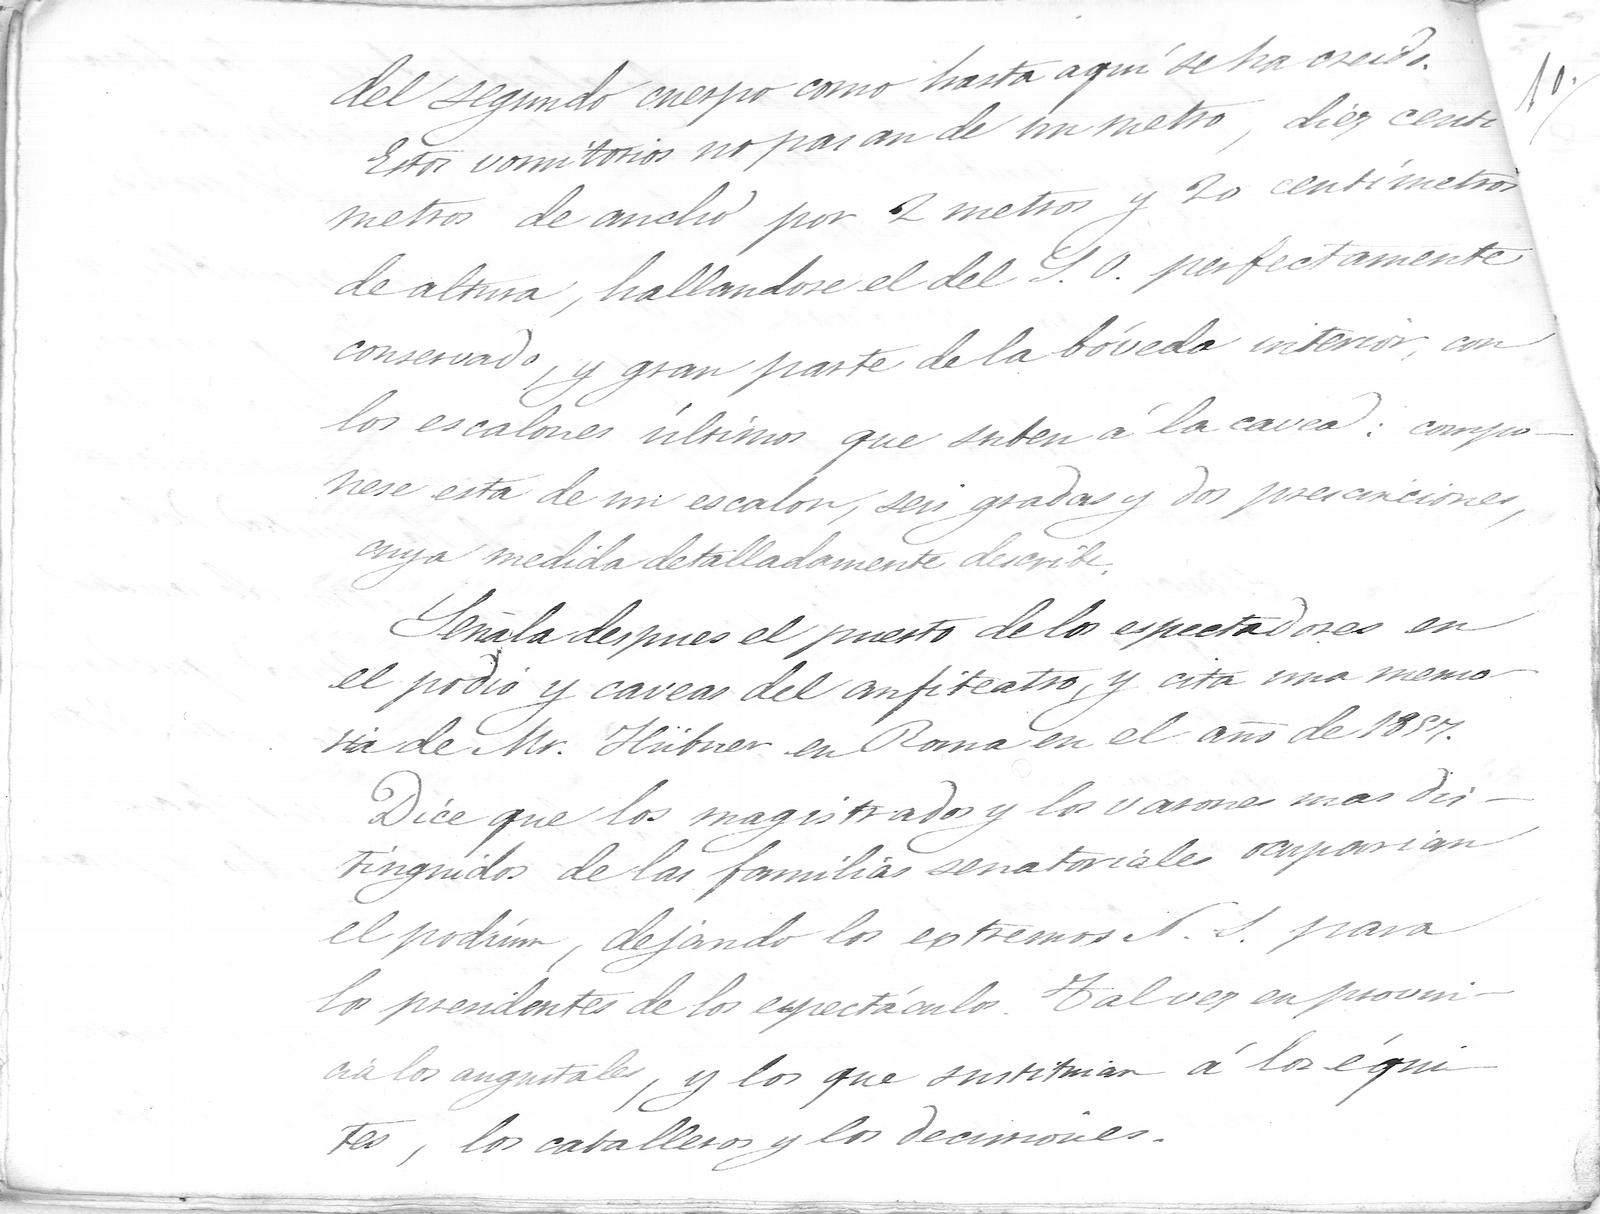 10.
del segundo cuerpo como hasta aquí se ha creido.
Estos vomitorios no pasan de un metro, diéz centi
metros de ancho por 2 metros y 20 centímetros
de altura, hallandose el del S. O. perfectamente
conservado, y gran parte de la bóveda interior, con
los escalones últimos que suben á la cavea: compo-
nese esta de un escalon, seis gradas y dos precinciones,
cuya medida detalladamente describe.
Señala despues el puesto de los espectadores en
el podio y caveas del anfiteatro, y cita una memo
ria de Mr. Hübner en Roma en el año de 1857.
Dice que los magistrados y los varones mas dis-
tinguidos de las familias senatoriales ocuparian
el podium, dejando los extremos N. S. para
los presidentes de los espectáculos. Tal vez en provin-
cia los augustales, y los que sustituian á los équi-
tes, los caballeros y los decuriones.